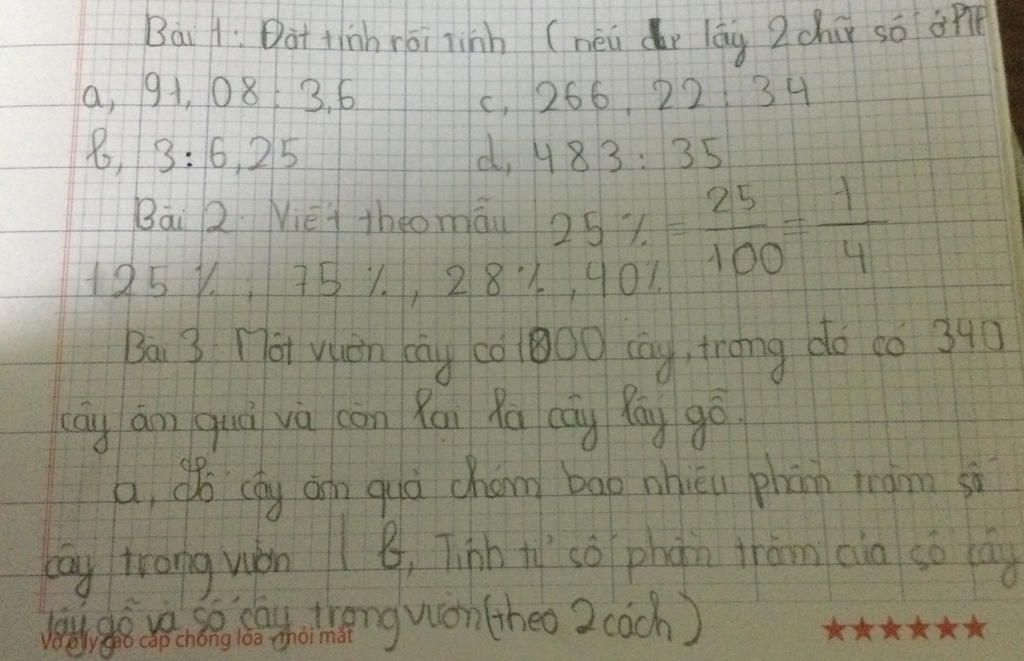 Bài 1: Đặt tính rồi tính (nếu dư lấy 2 chữ số ở PTP
a, 91,08 : 3,6 c, 266,22 : 34
b, 3 : 6,25 d, 483 : 35
Bài 2 Viết theo mẫu 25 % = 25/100 = 1/4
125 %, 75 %, 28 %, 40 %
Bài 3 Một vườn cây có 1000 cây, trong đó có 340
cây ăn quả và còn lại là cây lấy gỗ.
a, số cây ăn quả chăm bao nhiêu phần trăm số
cây trong vườn | b, Tính tỉ số phần trăm của số cây
lấy gỗ và số cây trong vườn (theo 2 cách)
Vở ôly cao cấp chống lóa, mỏi mắt